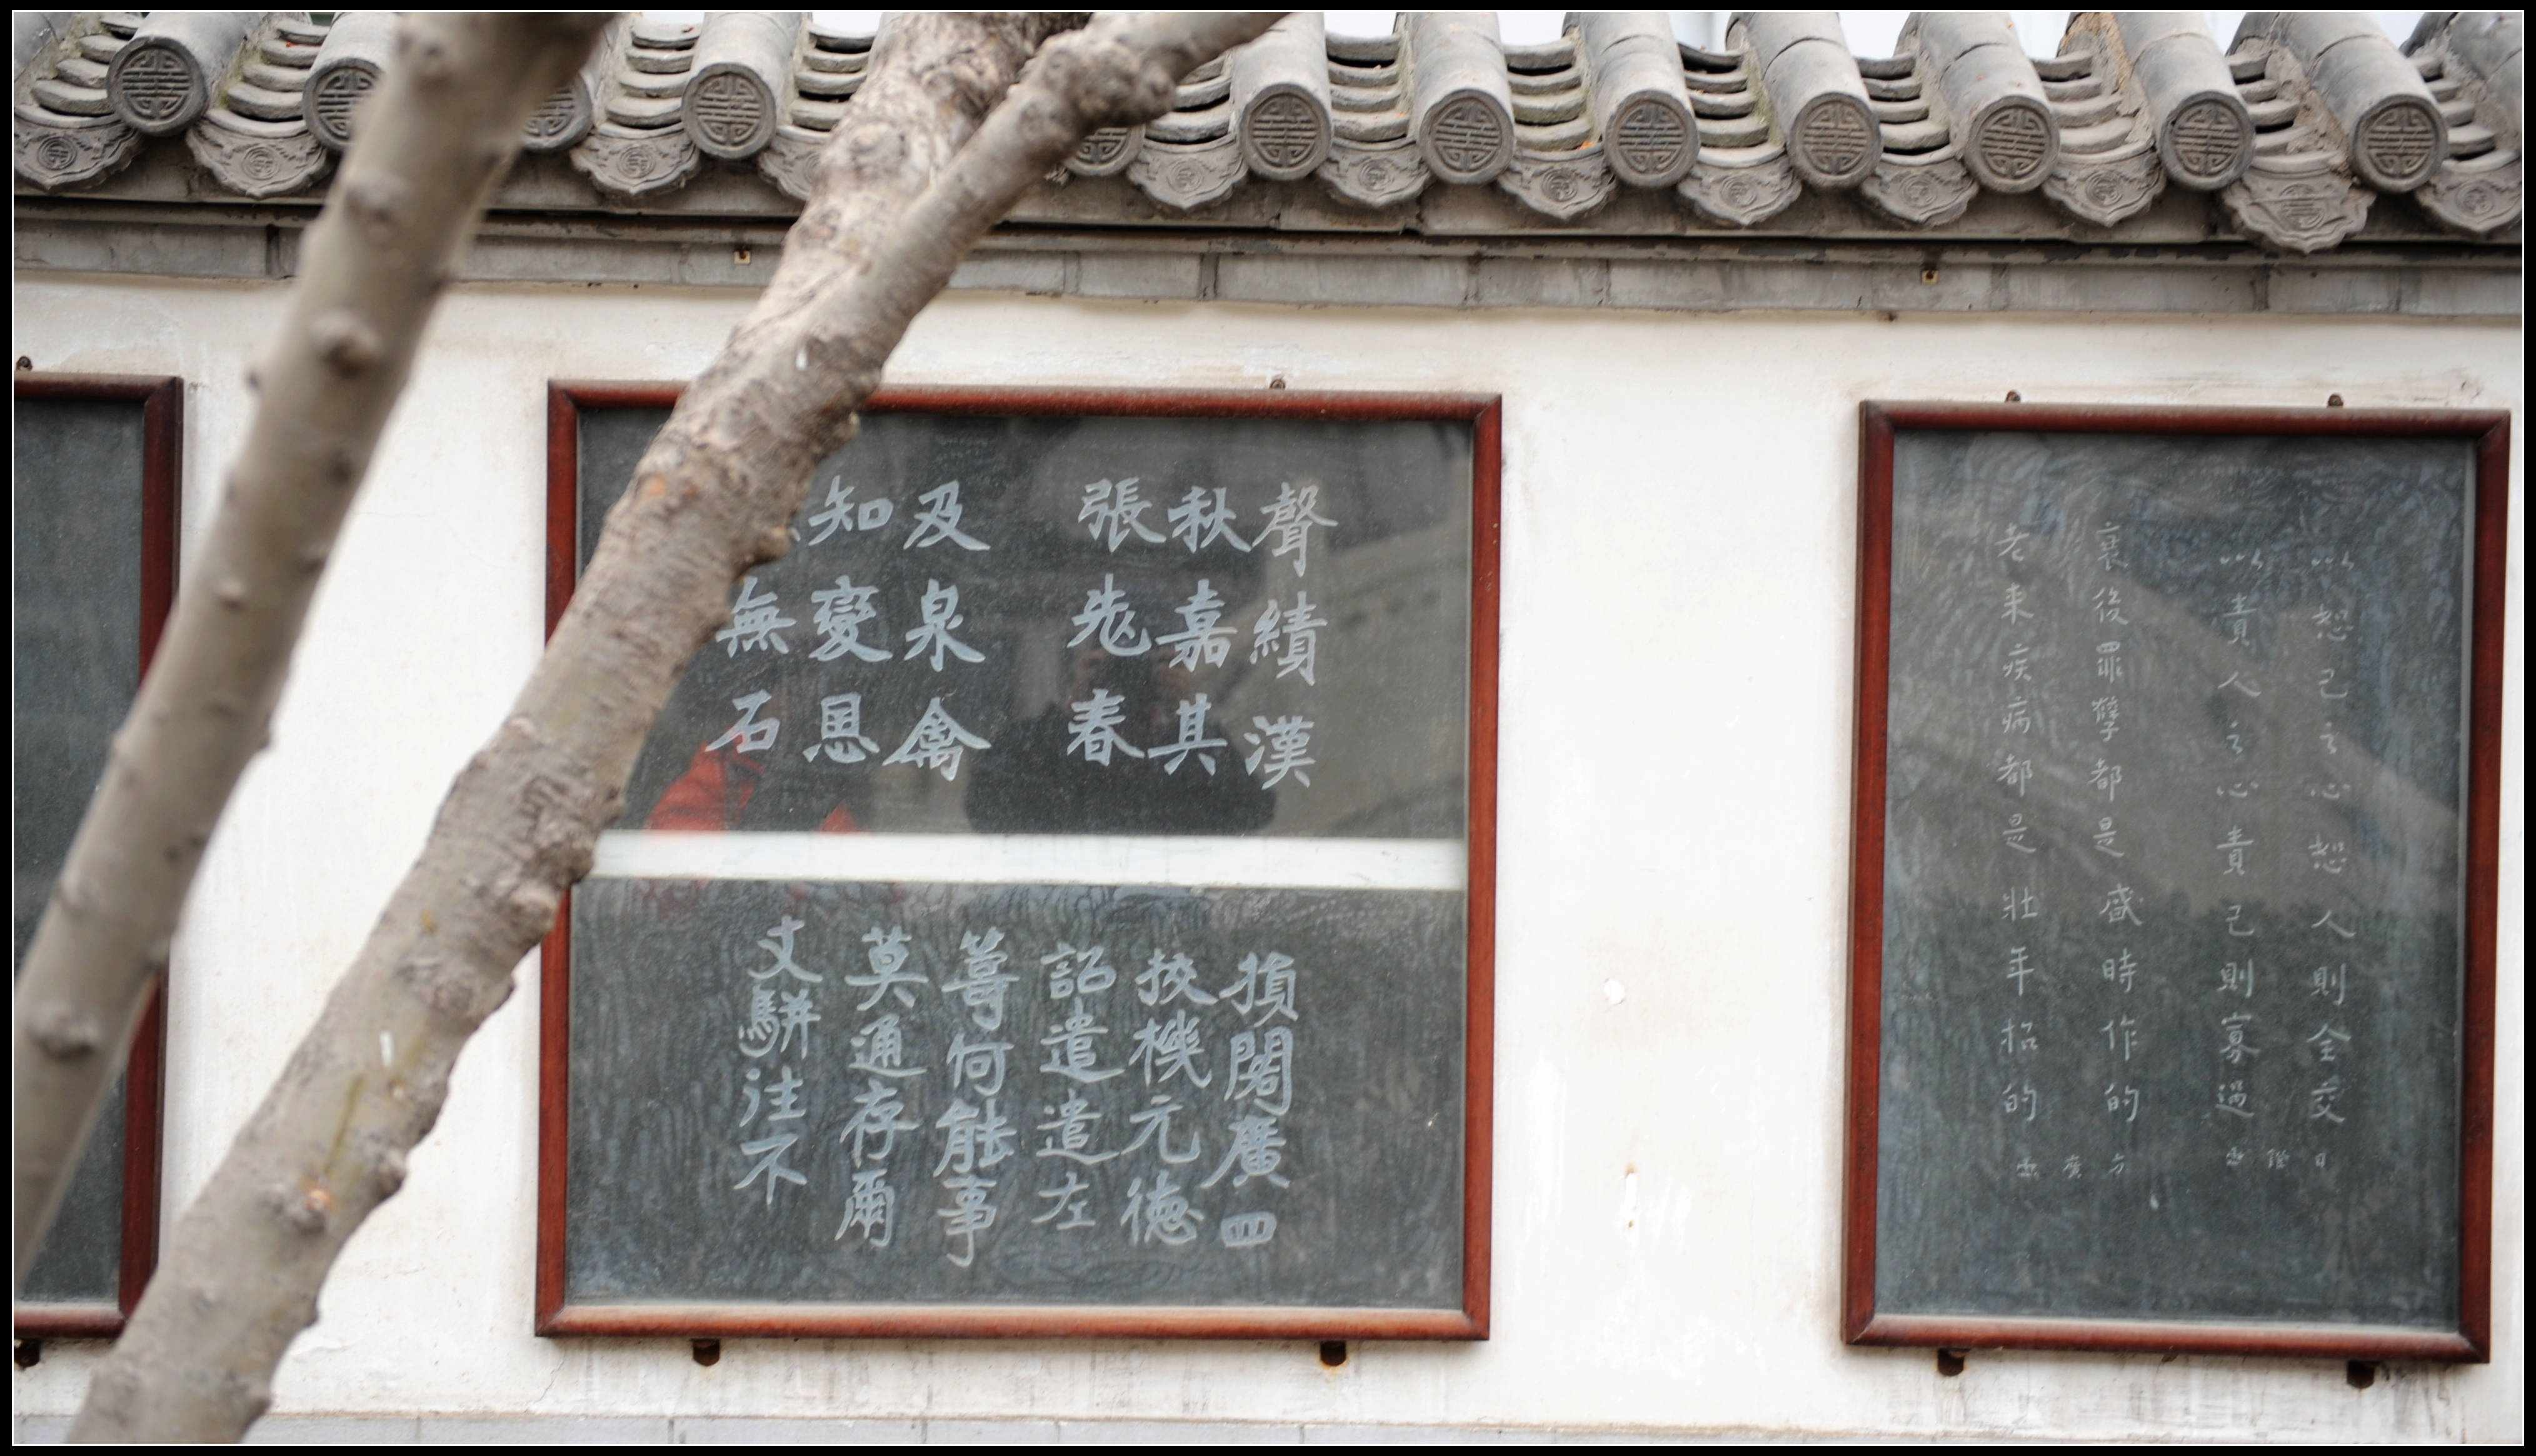 以恕己之心恕人則全交
以責人之心責己則寡過
衰後罪孽都是盛時作的
老来疾病都是壮年招的
聲績漢
秋嘉其
張春
及泉禽
知變恩
無石
損廣四
機元德
詔遣遣左
何能事
莫通存爾
駢注不